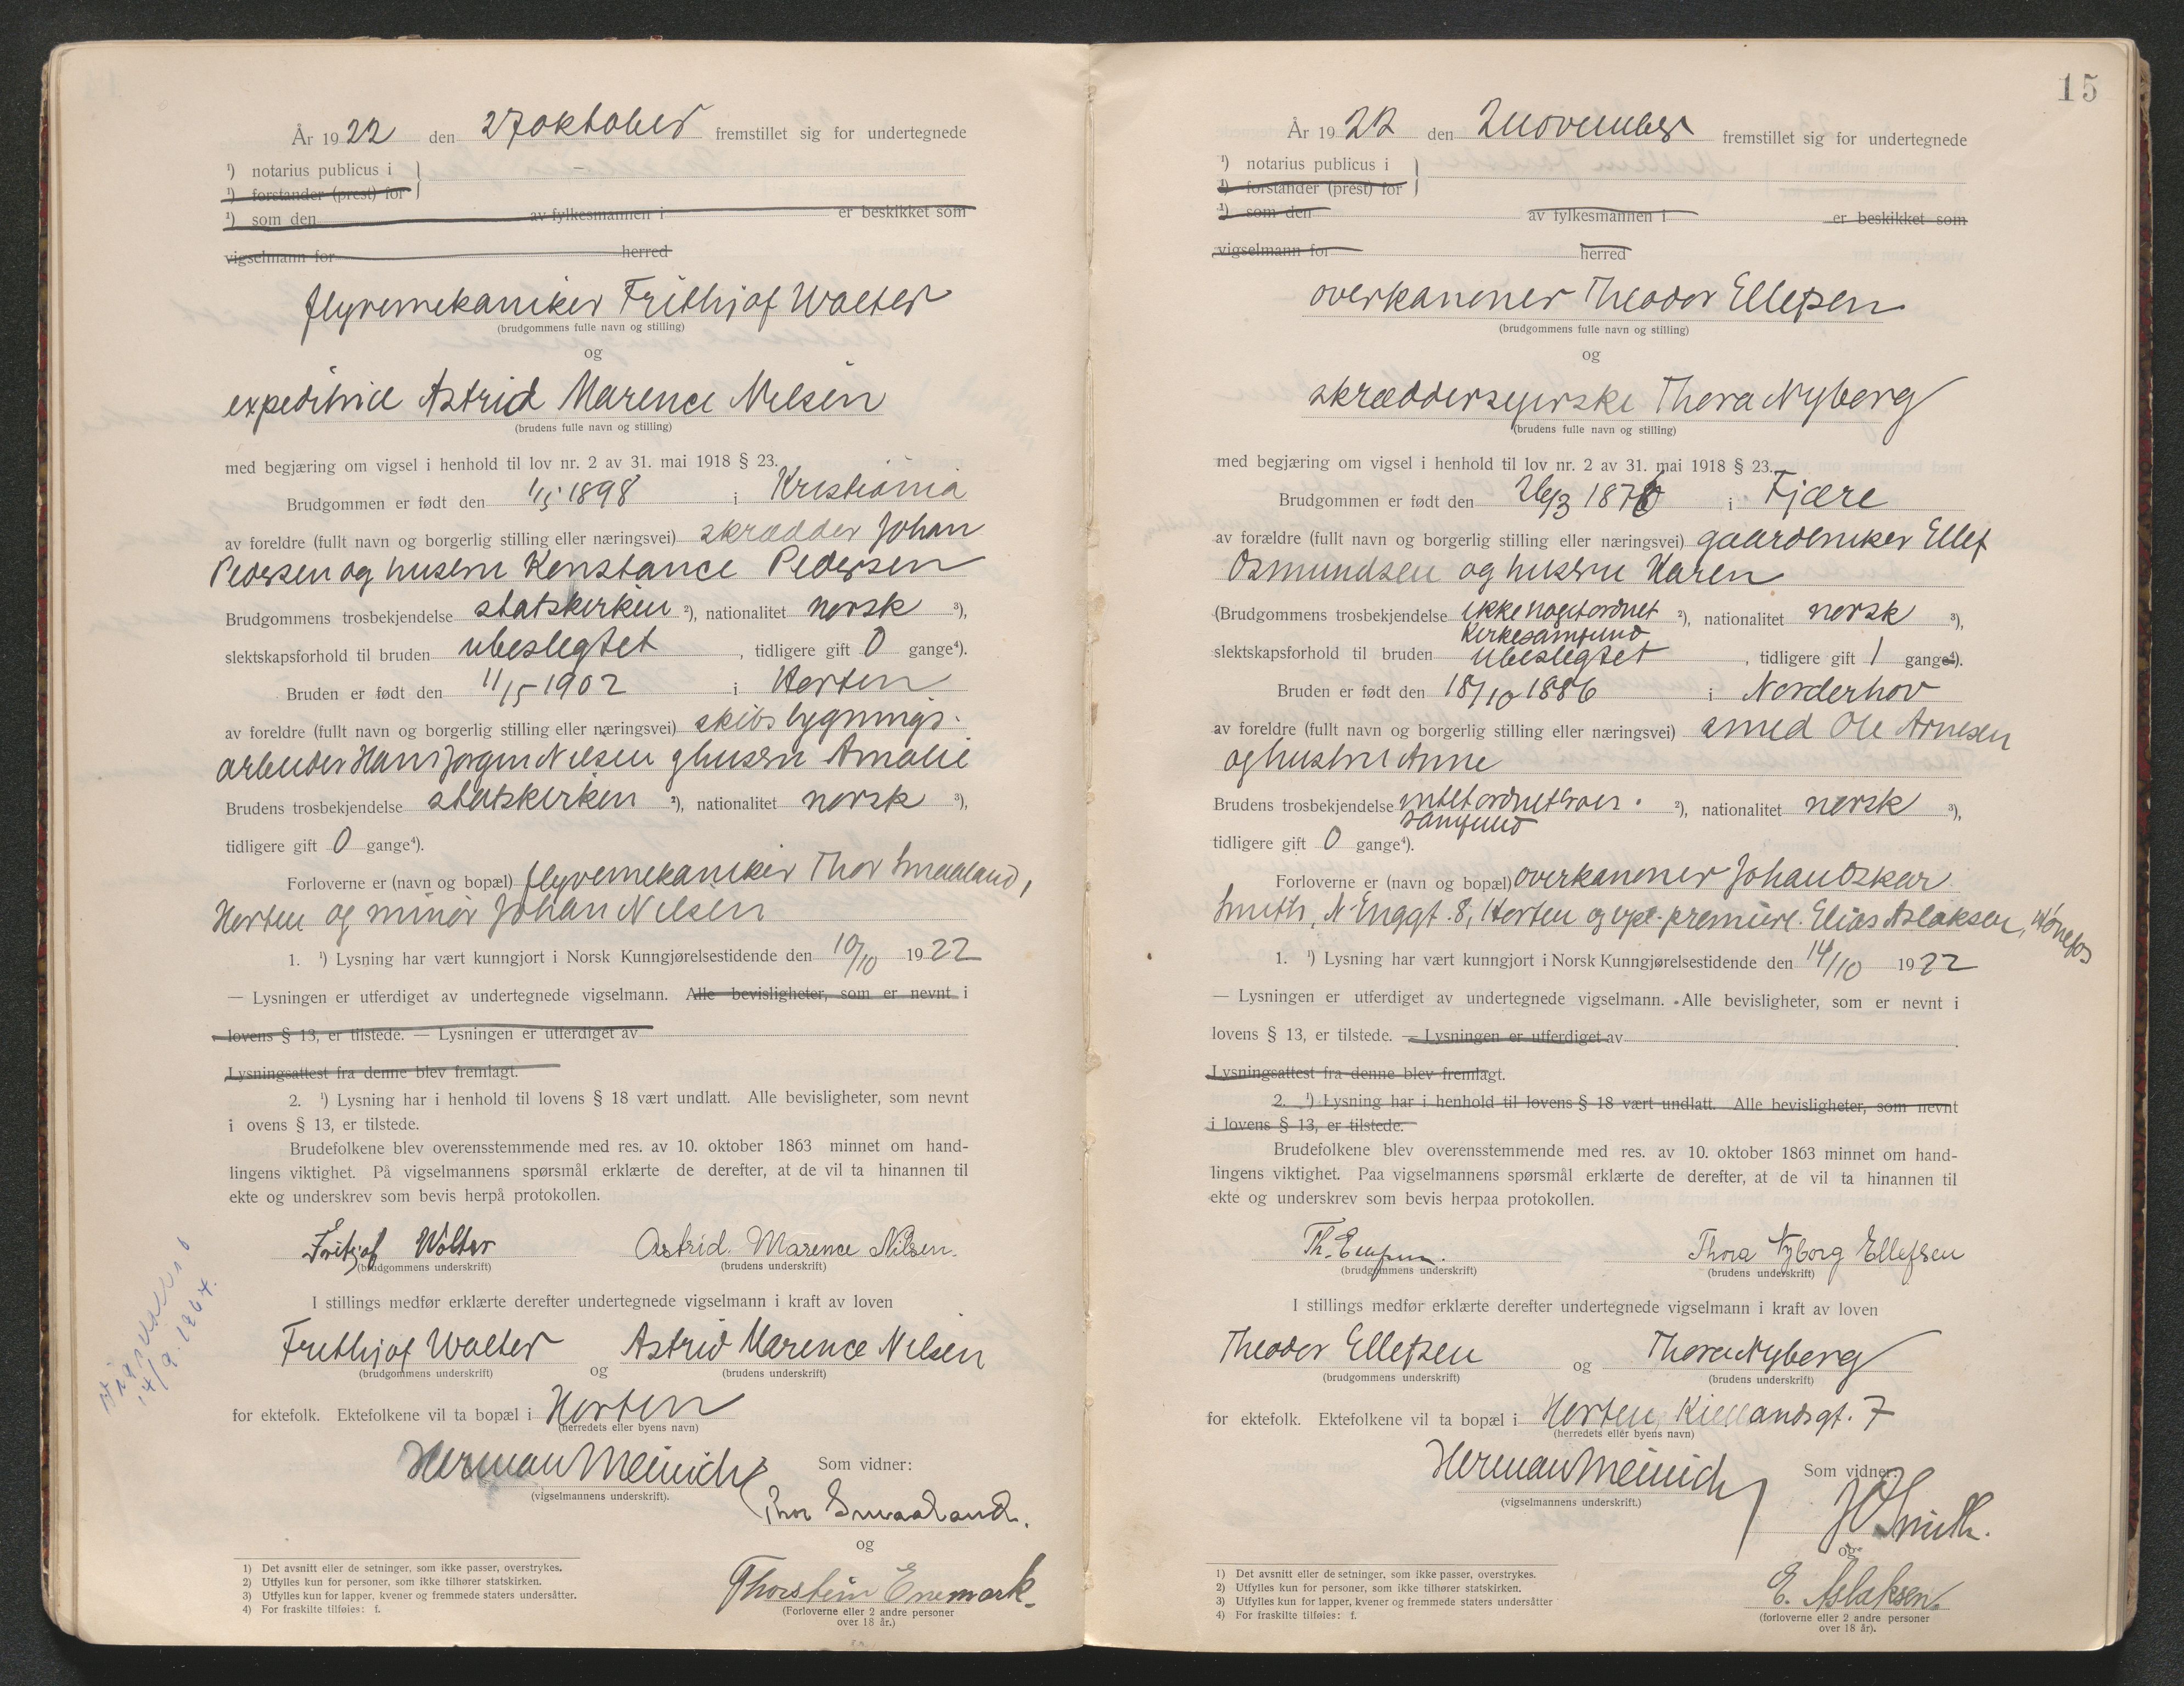 År 1922 den 27 oktober fremstillet sig for undertegnede
¹) notarius publicus i
¹) forstander (prest) for
¹) som den av fylkesmannen i er beskikket som
vigselmann for herred
flyvemekaniker Frithjof Wolter
(brudgommens fulle navn og stilling)
og
expeditrice Astrid Marence Nilsen
(brudens fulle navn og stilling)
med begjæring om vigsel i henhold til lov nr. 2 av 31. mai 1918 § 23.
Brudgommen er født den 1/5 1898 i Kristiania
av foreldre (fullt navn og borgerlig stilling eller næringsvei) skrædder Johan
Pedersen og hustru Konstance Pedersen
Brudgommens trosbekjendelse statskirken ²), nationalitet norsk ³),
slektskapsforhold til bruden ubeslegtet, tidligere gift 0 gange⁴).
Bruden er født den 11/5 1902 i Horten
av foreldre (fullt navn og borgerlig stilling eller næringsvei) skibsbygnings-
arbeider Hans Jørgen Nilsen og hustru Amalie
Brudens trosbekjendelse statskirken ²), nationalitet norsk ³),
tidligere gift 0 gange⁴).
Forloverne er (navn og bopæl) flyvemekaniker Thor Smaaland,
Horten og minør Johan Nilsen
1. ¹) Lysning har vært kunngjort i Norsk Kunngjørelsestidende den 10/10 1922
— Lysningen er utferdiget av undertegnede vigselmann. Alle bevisligheter, som er nevnt i
lovens § 13, er tilstede. — Lysningen er utferdiget av
Lysningsattest fra denne blev fremlagt.
2. ¹) Lysning har i henhold til lovens § 18 vært undlatt. Alle bevisligheter, som nevnt
i ovens § 13, er tilstede.
Brudefolkene blev overensstemmende med res. av 10. oktober 1863 minnet om hand-
lingens viktighet. På vigselmannens spørsmål erklærte de derefter, at de vil ta hinannen til
ekte og underskrev som bevis herpå protokollen.
Fritjof Wolter Astrid. Marence Nilsen.
(brudgommens underskrift) (brudens underskrift)
I stillings medfør erklærte derefter undertegnede vigselmann i kraft av loven
Frithjof Wolter og Astrid Marence Nilsen
(brudgommens underskrift) (brudens underskrift)
for ektefolk. Ektefolkene vil ta bopæl i Horten
(herredets eller byens navn)
Herman Meinich
(vigselmannens underskrift).
Som vidner:
Thor Smaaland.
og
Thorstein Enemark.
(Forloverne eller 2 andre personer
over 18 år.)
14/9. 1964.
1) Det avsnitt eller de setninger, som ikke passer, overstrykes.
2) Utfylles kun for personer, som ikke tilhører statskirken.
3) Utfylles kun for lapper, kvener og fremmede staters undersåtter.
4) For fraskilte tilføies: f.
15
År 1922 den 2 november fremstillet sig for undertegnede
¹) notarius publicus i
¹) forstander (prest) for
¹) som den av fylkesmannen i er beskikket som
vigselmann for herred
overkanoner Theodor Ellefsen
(brudgommens fulle navn og stilling)
og
skræddersyerske Thora Nyborg
(brudens fulle navn og stilling)
med begjæring om vigsel i henhold til lov nr. 2 av 31. mai 1918 § 23.
Brudgommen er født den 26/3 187 i Fjære
av forældre (fullt navn og borgerlig stilling eller næringsvei) gaardbruker Ellef
Osmundsen og hustru Karen
(Brudgommens trosbekjendelse ikke noget ordnet ²), nationalitet norsk ³),
kirkesamfund
slektskapsforhold til bruden ubeslegtet, tidligere gift 1 gange⁴).
Bruden er født den 18/10 1886 i Norderhov
av foreldre (fullt navn og borgerlig stilling eller næringsvei) smed Ole Arnesen
og hustru Anne
Brudens trosbekjendelse intet ordnet ²), nationalitet norsk ³),
samfund
tidligere gift 0 gange⁴).
Forloverne er (navn og bopæl) overkanoner Johan Oskar
Smith, N. Enggt. 8, Horten og vpl. premierl. Elias Aslaksen, Hønefos
1. ¹) Lysning har vært kunngjort i Norsk Kunngjørelsestidende den 14/10 1922
— Lysningen er utferdiget av undertegnede vigselmann. Alle bevisligheter, som er nevnt i
lovens § 13, er tilstede. — Lysningen er utferdiget av
Lysningsattest fra denne blev fremlagt.
2. ¹) Lysning har i henhold til lovens § 18 vært undlatt. Alle bevisligheter, som nevnt
i lovens § 13, er tilstede.
Brudefolkene blev overensstemmende med res. av 10. oktober 1863 minnet om hand-
lingens viktighet. Paa vigselmannens spørsmål erklærte de derefter, at de vil ta hinannen til
ekte og underskrev som bevis herpaa protokollen.
Th. Ellefsen. Thora Nyborg Ellefsen
(brudgommens underskrift) (brudens underskrift)
I stillings medfør erklærte derefter undertegnede vigselmann i kraft av loven
Theodor Ellefsen og Thora Nyborg
(brudgommens underskrift) (brudens underskrift)
for ektefolk. Ektefolkene vil ta bopæl i Horten, Kiellandsgt. 7
(herredets eller byens navn)
Herman Meinich
(vigselmannens underskrift.)
Som vidner:
JO Smith.
og
E. Aslaksen.
(forloverne eller 2 andre personer
over 18 år).
1) Det avsnitt eller de setninger, som ikke passer, overstrykes.
2) Utfylles kun for personer, som ikke tilhører statskirken.
3) Utfylles kun for lapper, kvener og fremmede staters undersåtter
4) For fraskilte tilføies: f.